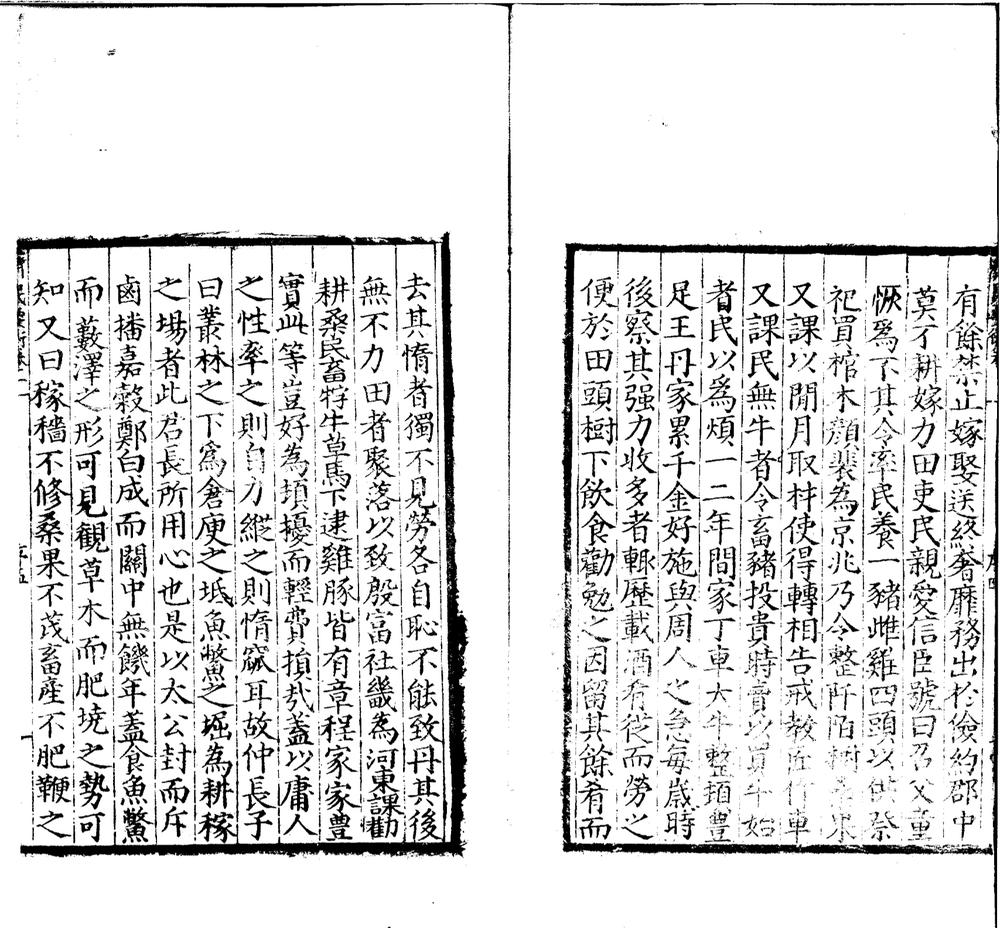 有餘禁止嫁娶送終奢靡務出於儉約郡中
莫不耕嫁力田吏民親愛信臣號曰召父童
恢為不其令率民養一豬雌雞四頭以供祭
祀買棺木顏裴為京兆乃令整阡陌樹桑果
又課以閒月取材使得轉相告戒教匠作車
又課民無牛者令畜豬投貴時賣以買牛始
者民以為煩一二年間家丁車大牛整頓豐
足王丹家累千金好施與周人之急每歲時
後察其强力收多者輒歷載酒肴從而勞之
便於田頭樹下飲食勸勉之因留其餘肴而
去其惰者獨不見勞各自恥不能致丹其後
無不力田者聚落以致殷富社畿為河東課勸
耕桑民畜牸牛草馬下逮雞豚皆有章程家家豐
實此等豈好為頃擾而輕費損㢤蓋以庸人
之性率之則自力縱之則惰窳耳故仲長子
曰叢林之下為倉庾之坻魚鱉之堀為耕稼
之場者此君長所用心也是以太公封而斥
鹵播嘉穀鄭白成而關中無饑年蓋食魚鱉
而藪澤之形可見觀草木而肥墝之勢可
知又曰稼穡不修桑果不茂畜產不肥鞭之